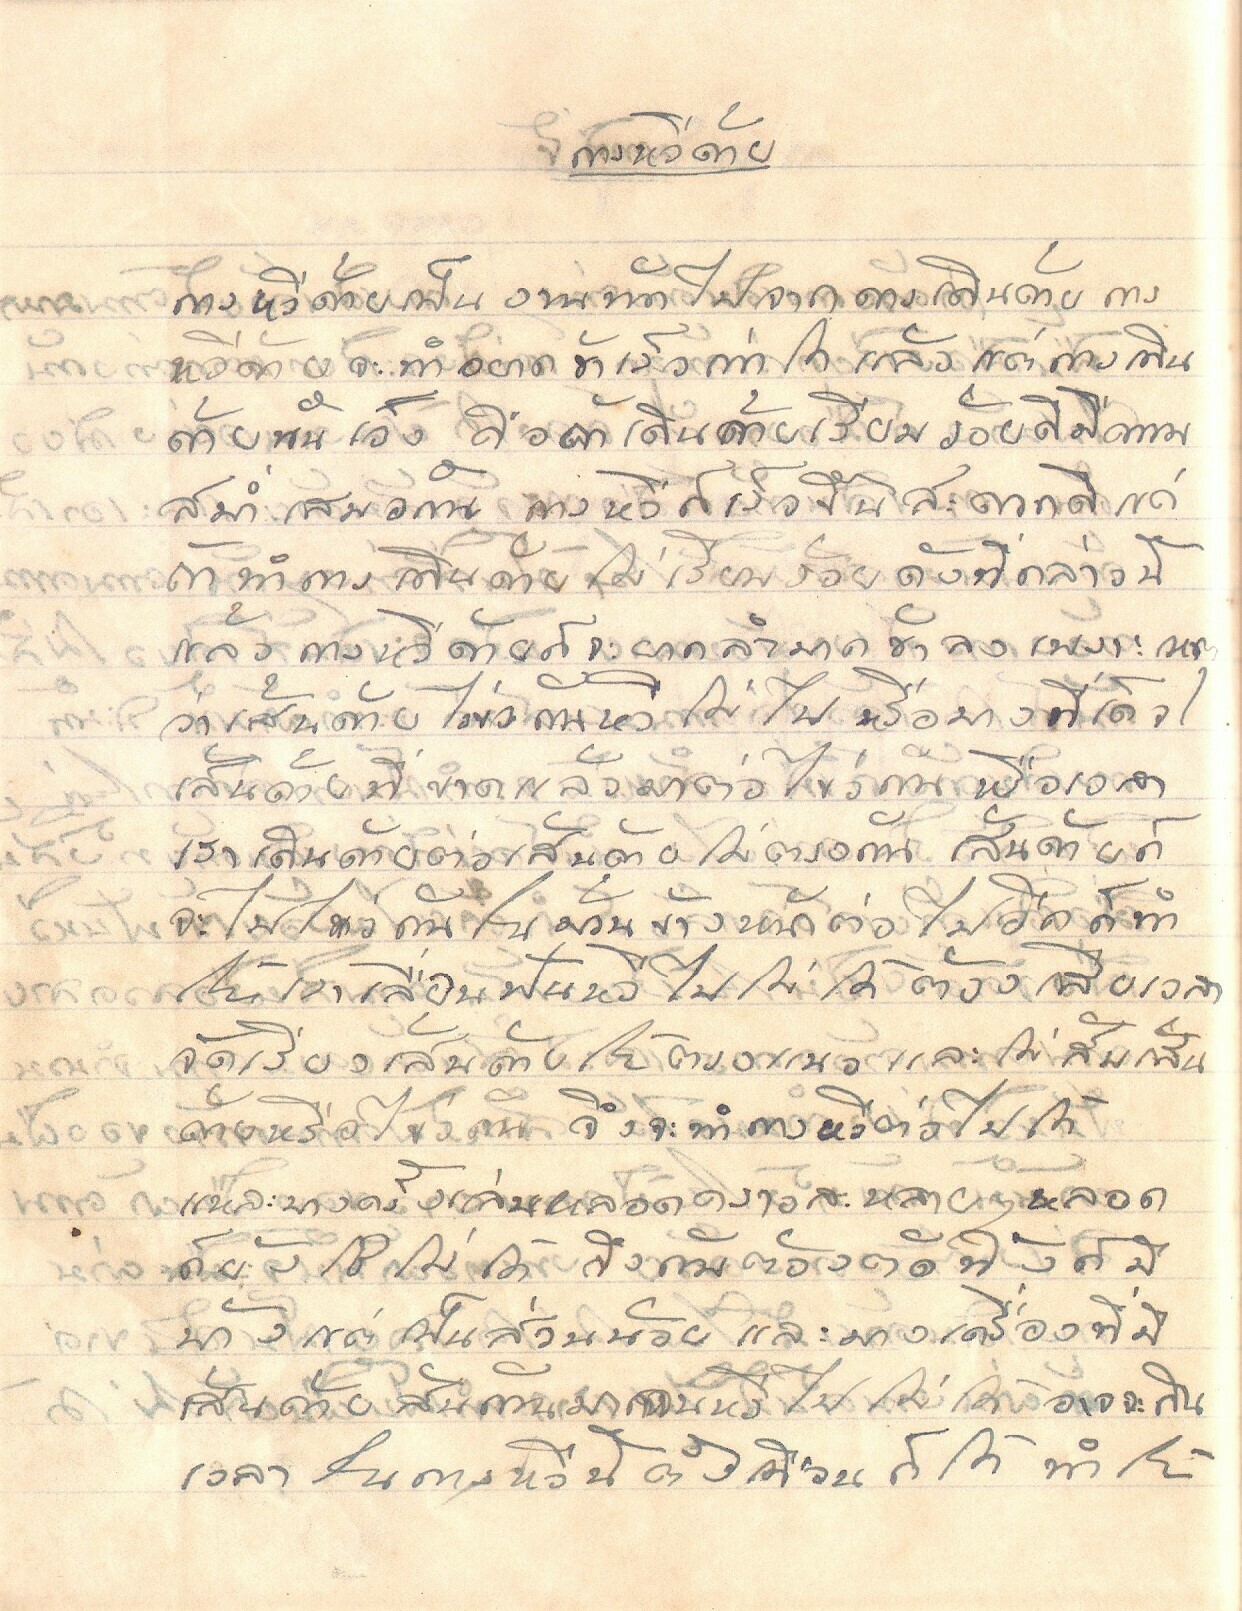 การหวีด้าย
การหวีด้ายเป็น งานถัดไปจากการเดินด้าย การ
หวีด้ายจะทำยากช้าเร็วเท่าใด แล้วแต่การเดิน
ด้ายนั้นเอง คือถ้าเดินด้ายเรียบร้อยดีมีความ
สม่ำเสมอกัน การหวีก็เร็วขึ้นสะดวกดี แต่
ถ้าทำการเดินด้ายไม่เรียบร้อยดังที่กล่าวนี้
แล้ว การหวีด้ายก็จะยากลำบากช้าลง เพราะ
ว่าเส้นด้ายไขว้กันหวีไม่ไป หรือบางทีเกิด
เส้นด้ายที่ขาดแล้วมาต่อไขว้กัน เมื่อเวลา
เราเดินด้ายต่อเส้นด้ายไม่ตรงกัน เส้นด้ายก็
จะไปไขว้กันในม้วนข้างหน้าต่อไปอีก ก็ทำ
ให้เราเลื่อนฟันหวีไปไม่ได้ ต้องเสียเวลา
จัดเรียงเส้นด้ายให้ตรงแนวและไม่สับเส้น
ด้ายหรือไขว้กัน จึงจะทำการหวีต่อไปได้
และบางครั้งเล่นหลอดคราวละหลายๆหลอด
ก็ยังใช้ไม่ได้ ถึงกับต้องตัดทิ้งก็มี
บ้าง แต่เป็นส่วนน้อย และบางเครื่องที่มี
เส้นด้ายสับกันมากจนหวีไปไม่ได้ อาจจะกิน
เวลาในการหวีนี้ตั้งเดือนก็ได้ ทำให้